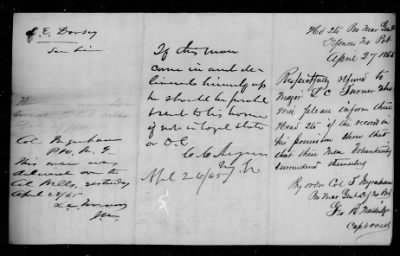 J. E. Dorsey
If this man
come in and de-
livered himself up
he should be
sent to his home
if in a loyal state
or D.C.
Apl 26/65
Col Ingraham
This man was
delivered over to
Col Wells, yesterday
April 28/65
Hd Qts Pro Mar Genl
Defences No Pot
April 27 1865
Respectfully referred to
Major L C Turner who
will please inform these
Head Qts if the records in
his possession show that
that these men voluntarily
surrendered themselves
By order Col T Ingraham
Pro Mar Genl Def No Pot
Geo R
Capt